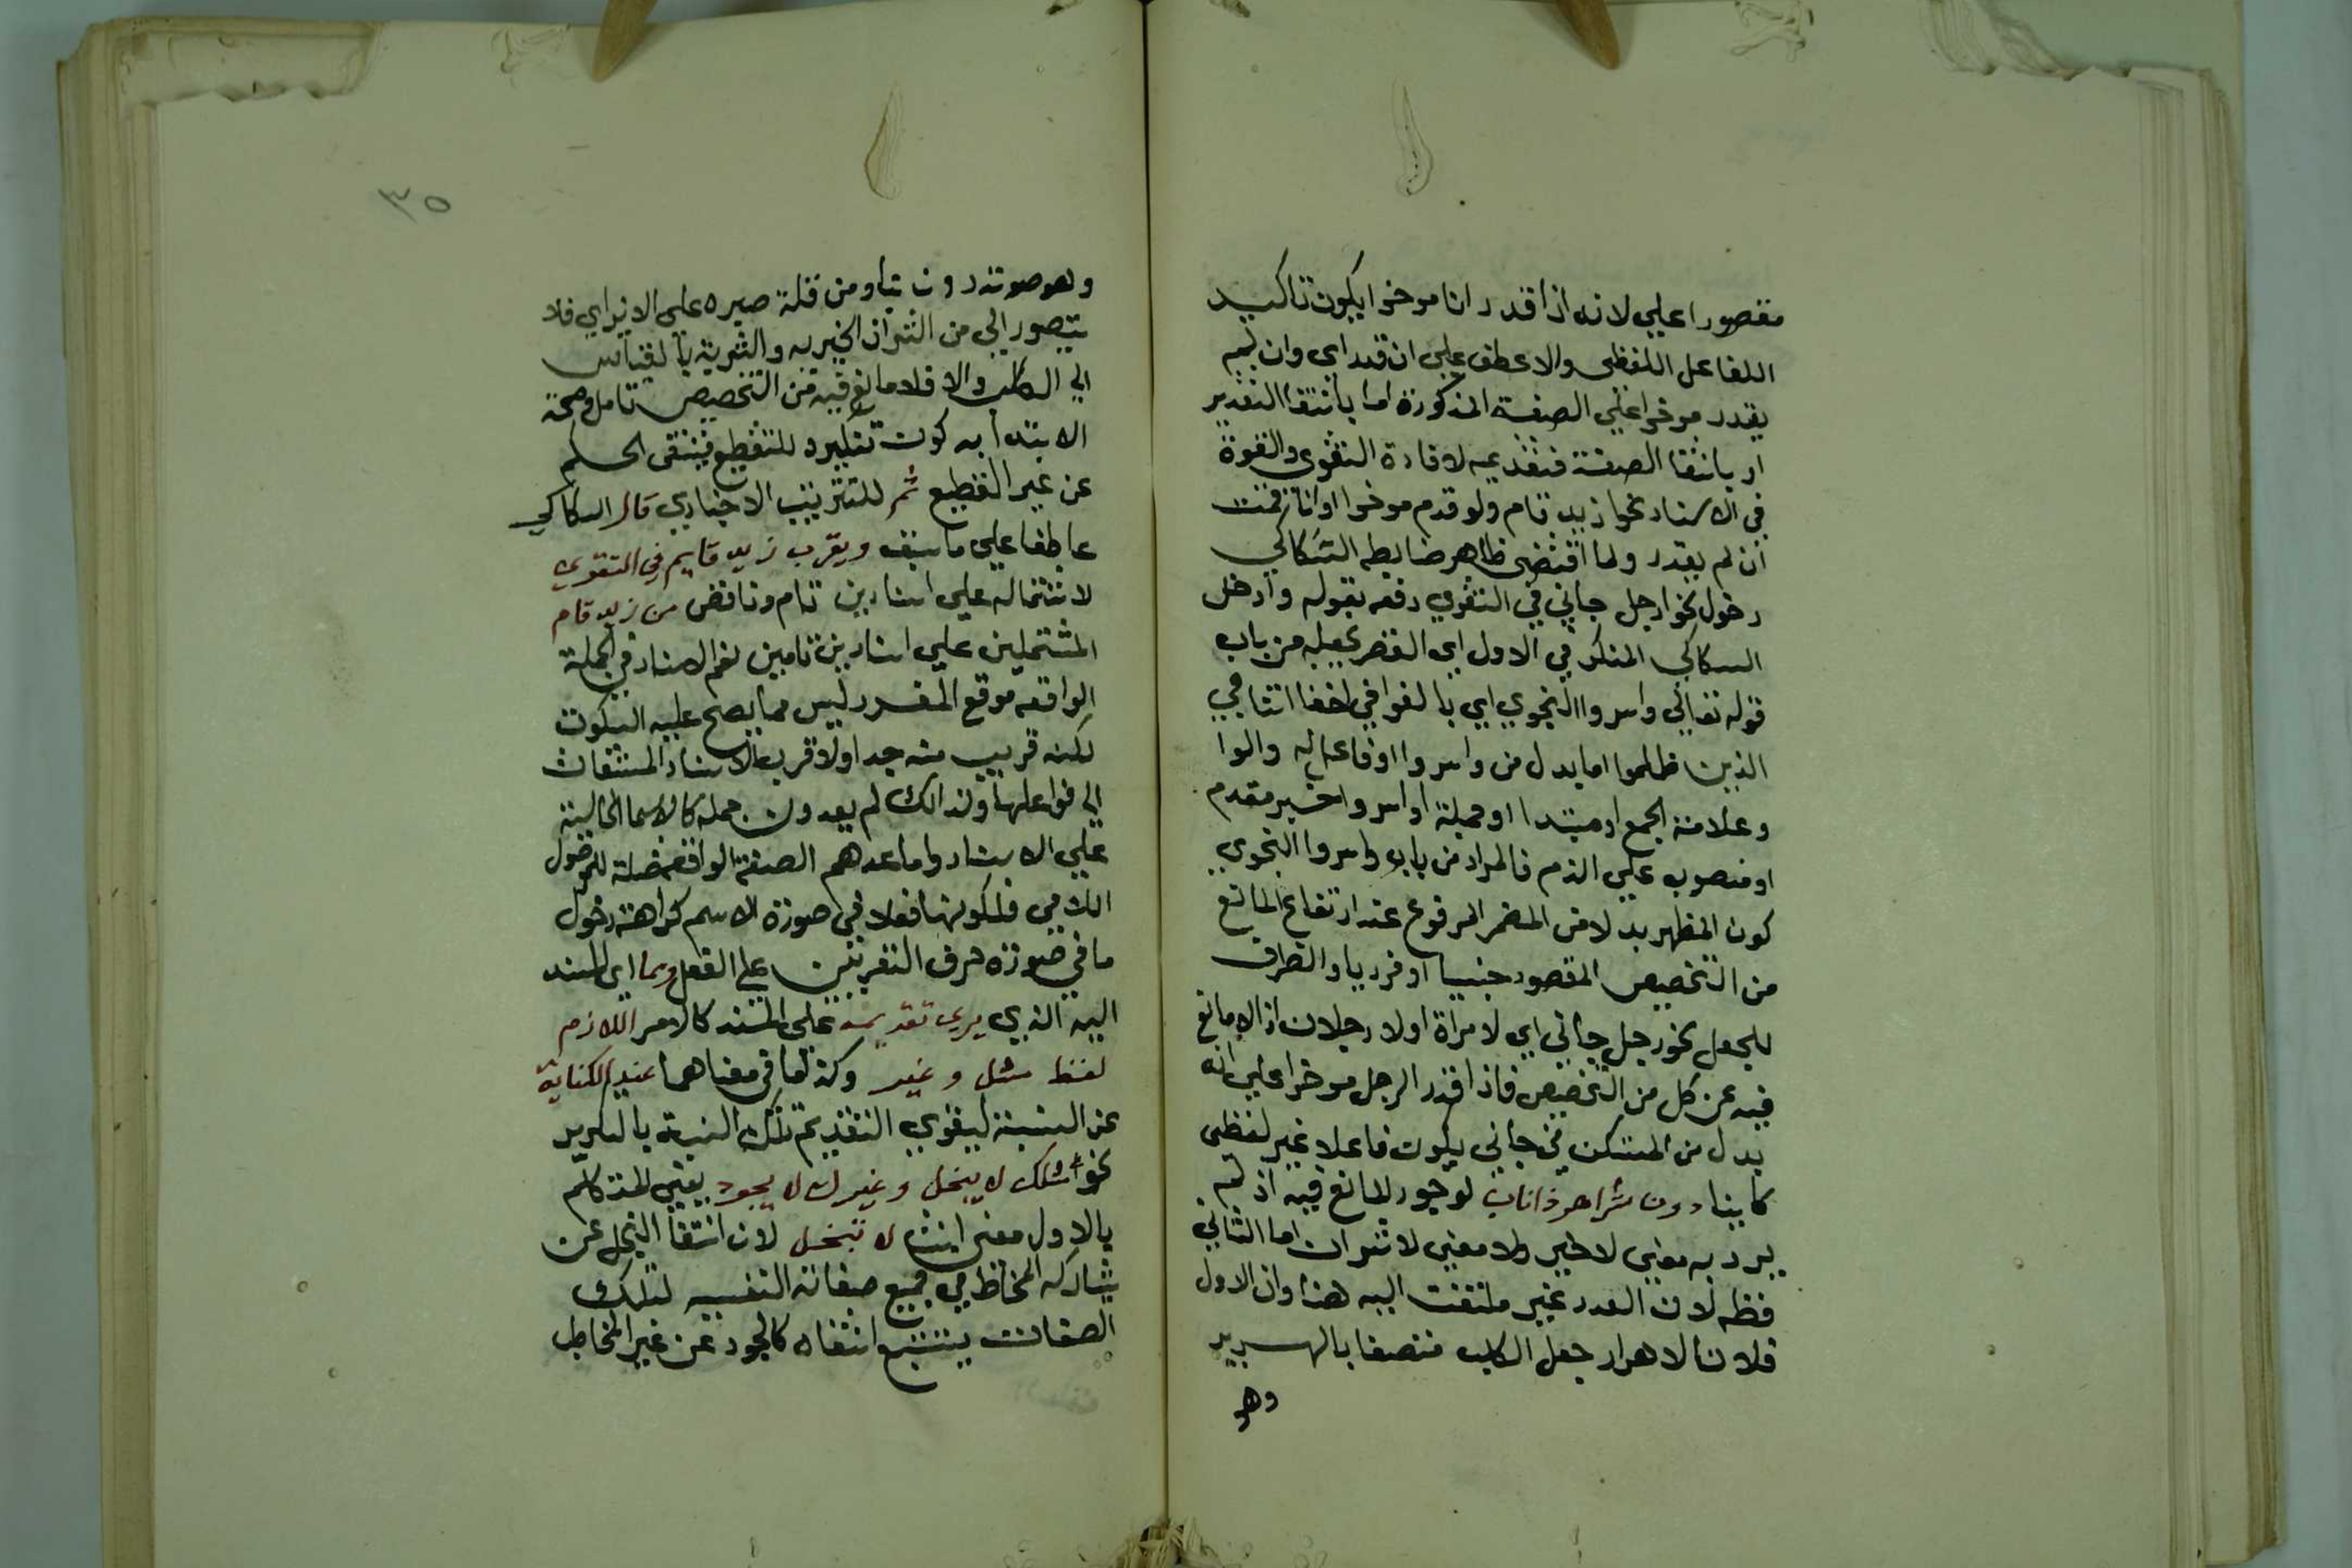 مقصورا علي لانه اذا قدر انا موخرا يكون تاكيد
اللفاعل اللفظى والا عطف علي ان قدر اي وان لم
يقدر موخرا علي الصفة المذكورة اما بانتفا التقدير
او بانتفا الصفة فتقديمه لافادة التقوى والقوة
في الاسناد نحوا زيد قام ولو قدم موخرا او انا قمت
ان لم يقدر ولما اقتضى ظاهر ضابطه السكاكي
دخول نحو ارجل جاني في التقوي دفعه بقوله وادخل
السكاكي المنكر في الاول اي القصر بجعله من باب
قوله تعالى واسروا النجوي اي بالغوا في اخفا التناجي
الذين ظلموا اما بدل من واسروا او فاعل له والوا
وعلامة الجمع او مبتدا او جملة او اسروا خبر مقدم
او منصوب علي الذم فالمراد من باب واسروا النجوي
كون المظهر بدلا من المضمر المرفوع عند ارتفاع المانع
من التخصيص المقصود جنسيا او فرديا والظرف
للجعل نحو رجل جاني اي لا مراة او لا رجلان اذ لا مانع
فيه عن كل من التخصيص فاذا قدر الرجل موخرا علي انه
بدل من المستكن في جاني يكون فاعلا غير لفظى
كما بينا دون شر اهر ذا ناب لوجود المانع فيه اذ لم
يرد به معنى لا خير ولا معنى لا شران اما الثاني
فظه لان العدد غير ملتفت اليه هذا وان الاول
فلان الاهرار جعل الكلب متصفا بالهرير
وهو
٣٥
وهو صوته دون نباح ومن قلة صبره علي الاذى اي فلا
يتصور الي من الشران الخيريه والشرية بالقياس
الي الكلب والا فلا مانع فيه من التخصيص تامل وصحة
الابتدا به كون تنكيره للتفظيع فينتفى الحكم
عن غير الفظيع ثم للترتيب الاخباري قال السكاكي
عاطفا علي ما سبق ويقرب زيد قايم في التقوي
لاشتماله علي اسنادين تام وناقض من زيد قام
المشتملين علي اسنادين تامين نعم الاسناد في الجملة
الواقعه موقع المفرد ليس مما يصح عليه السكوت
لكنه قريب منه جدا ولا قرب لاسناد المشتقات
الي فواعلها ولذالك لم يعدون جمله كالاسما الخالية
علي الاسناد واما عدهم الصفة الواقعه صلة للموصول
اللامي فلكونها فعلا في صورة الاسم كراهة دخول
ما في صورة حرف التعريف علي الفعل ومما اي المسند
اليه الذي يري تقديمه علي المسند كالامر اللازم
لفظ مثل وغير وكذا ما في معناهما عند الكناية
عن النسبة ليقوي التقديم تلك النسبة بالتكرير
نحو مثلك لا يبخل وغيرك لا يجود يعني المتكلم
بالاول معنى انت لا تبخل لان انتفا البخل عن
يشاركه المخاطب في جميع صفاته النفسيه لتلك
الصفات يستتبع انتفاه كالجود عن غير المخاطب